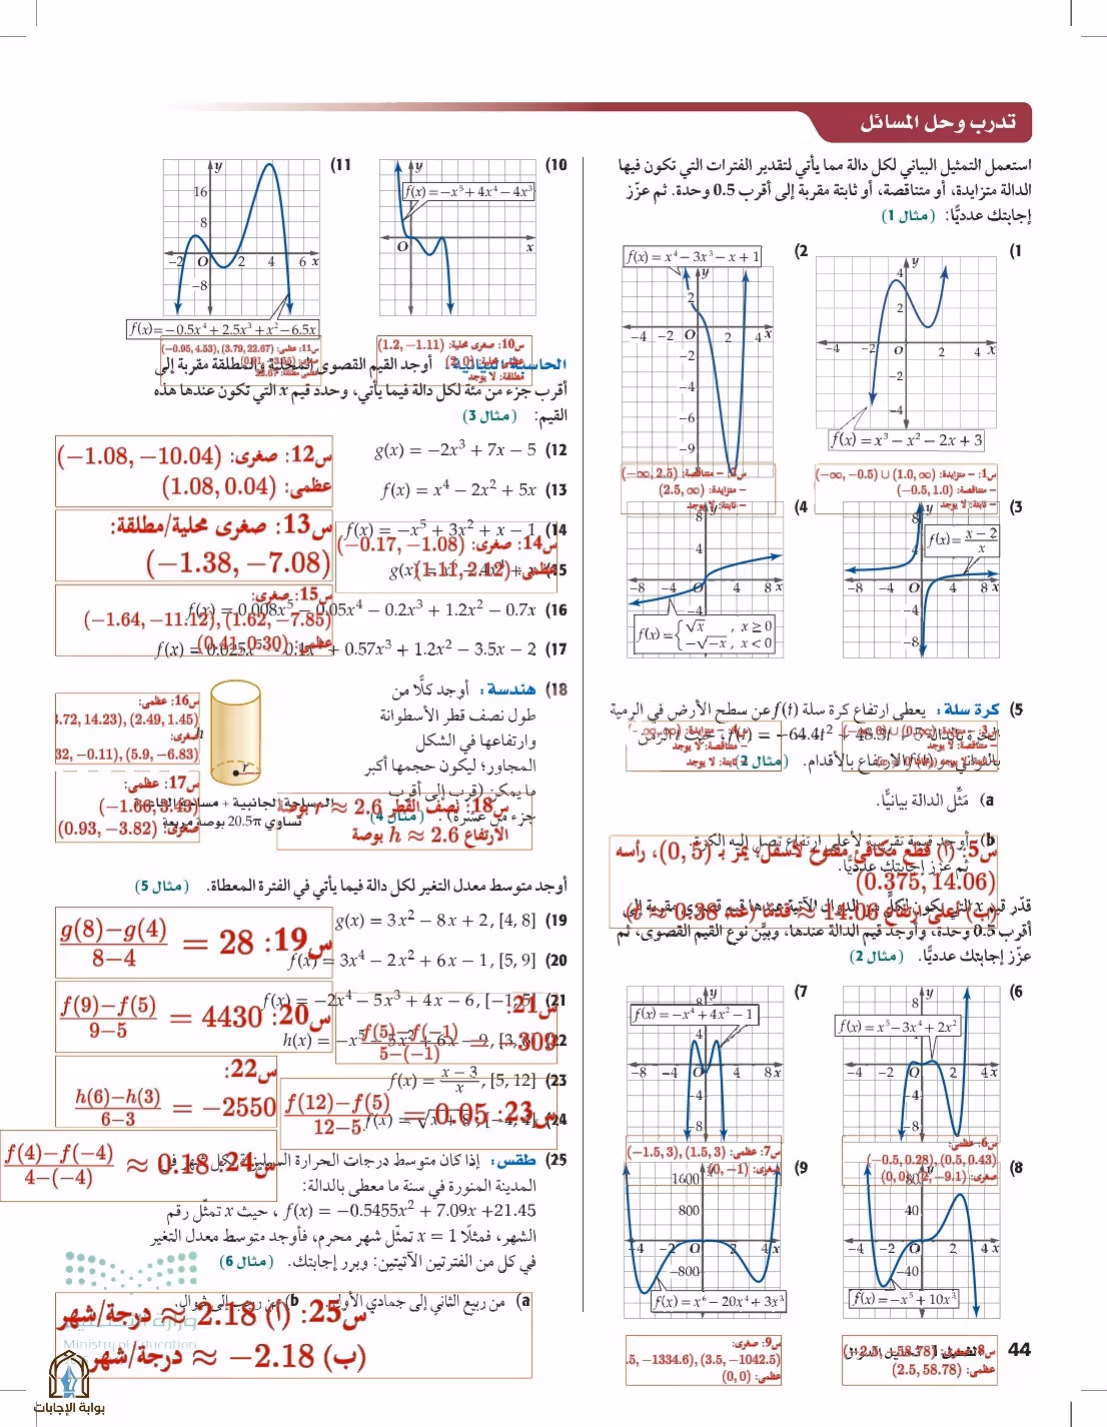 تدرب وحل المسائل
استعمل التمثيل البياني لكل دالة مما يأتي لتقدير الفترات التي تكون فيها
الدالة متزايدة، أو متناقصة، أو ثابتة مقربة إلى أقرب 0.5 وحدة. ثم عزّز
إجابتك عدديًّا: (مثال 1)
(1
f(x) = x³ − x² − 2x + 3
س1: – متزايدة: (−∞, −0.5) ∪ (1.0, ∞)
– متناقصة: (−0.5, 1.0)
– ثابتة: لا يوجد
(2
f(x) = x⁴ − 3x³ − x + 1
س2: – متناقصة: (−∞, 2.5)
– متزايدة: (2.5, ∞)
– ثابتة: لا يوجد
(3
f(x) = x − 2 / x
(4
f(x) = { √x , x ≥ 0
−√−x , x < 0
5) كرة سلة: يعطى ارتفاع كرة سلة f(t) عن سطح الأرض في الرمية
الارتفاع بالأقدام. (مثال 2)
a) مَثِّل الدالة بيانيًّا.
b) أوجد قيمة تقريبية لأعلى ارتفاع تصل إليه الكرة
ثم عزز إجابتك عدديًّا.
س5: (أ) قطع مكافئ مفتوح لأسفل، يمر بـ (0, 5)، رأسه
(0.375, 14.06)
(ب) أعلى ارتفاع ≈ 14.06 قدمًا (عند t ≈ 0.38)
أقرب 0.5 وحدة، وأوجد قيم الدالة عندها، وبيِّن نوع القيم القصوى، ثم
عزّز إجابتك عدديًّا. (مثال 2)
(6
f(x) = x⁵ − 3x⁴ + 2x²
س6: عظمى:
(−0.5, 0.28), (0.5, 0.43)
صغرى: (0, 0), (2, −9.1)
(7
f(x) = −x⁴ + 4x² − 1
س7: عظمى: (−1.5, 3), (1.5, 3)
صغرى: (0, −1)
(8
f(x) = −x⁵ + 10x³
عظمى: (2.5, 58.78)
(9
f(x) = x⁶ − 20x⁴ + 3x³
س9: صغرى:
.5, −1334.6), (3.5, −1042.5)
عظمى: (0, 0)
44
(10
f(x) = −x⁵ + 4x⁴ − 4x³
س10: صغرى محلية: (1.2, −1.11)
مطلقة: لا يوجد
(11
f(x) = −0.5x⁴ + 2.5x³ + x² − 6.5x
س11: عظمى: (−0.95, 4.53), (3.79, 22.67)
الحاسبة البيانية: أوجد القيم القصوى المحلية والمطلقة مقربة إلى
أقرب جزء من مئة لكل دالة فيما يأتي، وحدد قيم x التي تكون عندها هذه
القيم: (مثال 3)
12) g(x) = −2x³ + 7x − 5
س12: صغرى: (−1.08, −10.04)
عظمى: (1.08, 0.04)
13) f(x) = x⁴ − 2x² + 5x
س13: صغرى محلية/مطلقة:
(−1.38, −7.08)
14) f(x) = −x⁵ + 3x² + x − 1
س14: صغرى: (−0.17, −1.08)
عظمى: (1.11, 2.12)
س15: صغرى:
(−1.64, −11.12), (1.62, −7.85)
عظمى: (0.41, 0.30)
16) f(x) = 0.008x⁵ − 0.05x⁴ − 0.2x³ + 1.2x² − 0.7x
17) + 0.57x³ + 1.2x² − 3.5x − 2
18) هندسة: أوجد كلًّا من
طول نصف قطر الأسطوانة
وارتفاعها في الشكل
المجاور؛ ليكون حجمها أكبر
ما يمكن (قرب إلى أقرب
جزء من عشرة). (مثال 4)
تساوي 20.5π بوصة مربعة
س16: عظمى:
.72, 14.23), (2.49, 1.45)
صغرى:
32, −0.11), (5.9, −6.83)
س17: عظمى:
(−1.66, 3.43)
صغرى: (0.93, −3.82)
س18: نصف القطر r ≈ 2.6 بوصة
الارتفاع h ≈ 2.6 بوصة
أوجد متوسط معدل التغير لكل دالة فيما يأتي في الفترة المعطاة. (مثال 5)
19) g(x) = 3x² − 8x + 2, [4, 8]
س19: g(8)−g(4) / 8−4 = 28
20) f(x) = 3x⁴ − 2x² + 6x − 1, [5, 9]
س20: f(9)−f(5) / 9−5 = 4430
21) f(x) = −2x⁴ − 5x³ + 4x − 6, [−1, 5]
س21: f(5)−f(−1) / 5−(−1)
س22: h(6)−h(3) / 6−3 = −2550
23) f(x) = x − 3 / x , [5, 12]
س23: f(12)−f(5) / 12−5 = 0.05
س24: f(4)−f(−4) / 4−(−4) ≈ 0.18
25) طقس: إذا كان متوسط درجات الحرارة السيليزية لكل شهر في
المدينة المنورة في سنة ما معطى بالدالة:
f(x) = −0.5455x² + 7.09x +21.45 ، حيث x تمثّل رقم
الشهر، فمثلًا x = 1 تمثّل شهر محرم، فأوجد متوسط معدل التغير
في كل من الفترتين الآتيتين: وبرر إجابتك. (مثال 6)
a) من ربيع الثاني إلى جمادي الأولى. b) من رجب إلى شوال.
س25: (أ) ≈ 2.18 درجة/شهر
(ب) ≈ −2.18 درجة/شهر
Ministry of Education
بوابة الإجابات